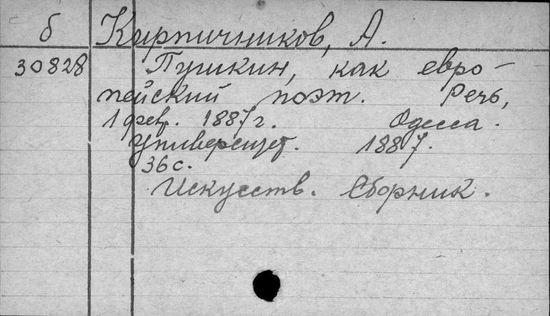 б Кирпичников, А.
30828 Пушкин, как евро-
пейский поэт. Речь,
1 фев. 1887 г. Одесса.
Университ. 1887.
36 с.
Искусств. Сборник.